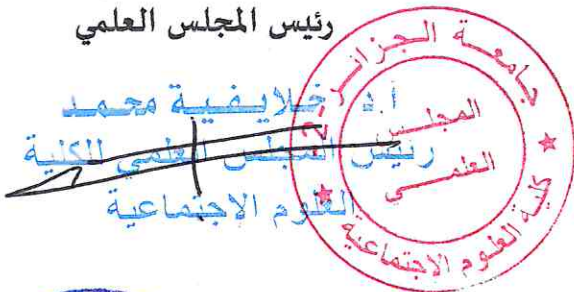 رئيس المجلس العلمي
أ.د خلايفية محمد
رئيس المجلس العلمي للكلية
العلوم الاجتماعية
جامعة الجزائر
المجلس
العلمي
كلية العلوم الاجتماعية